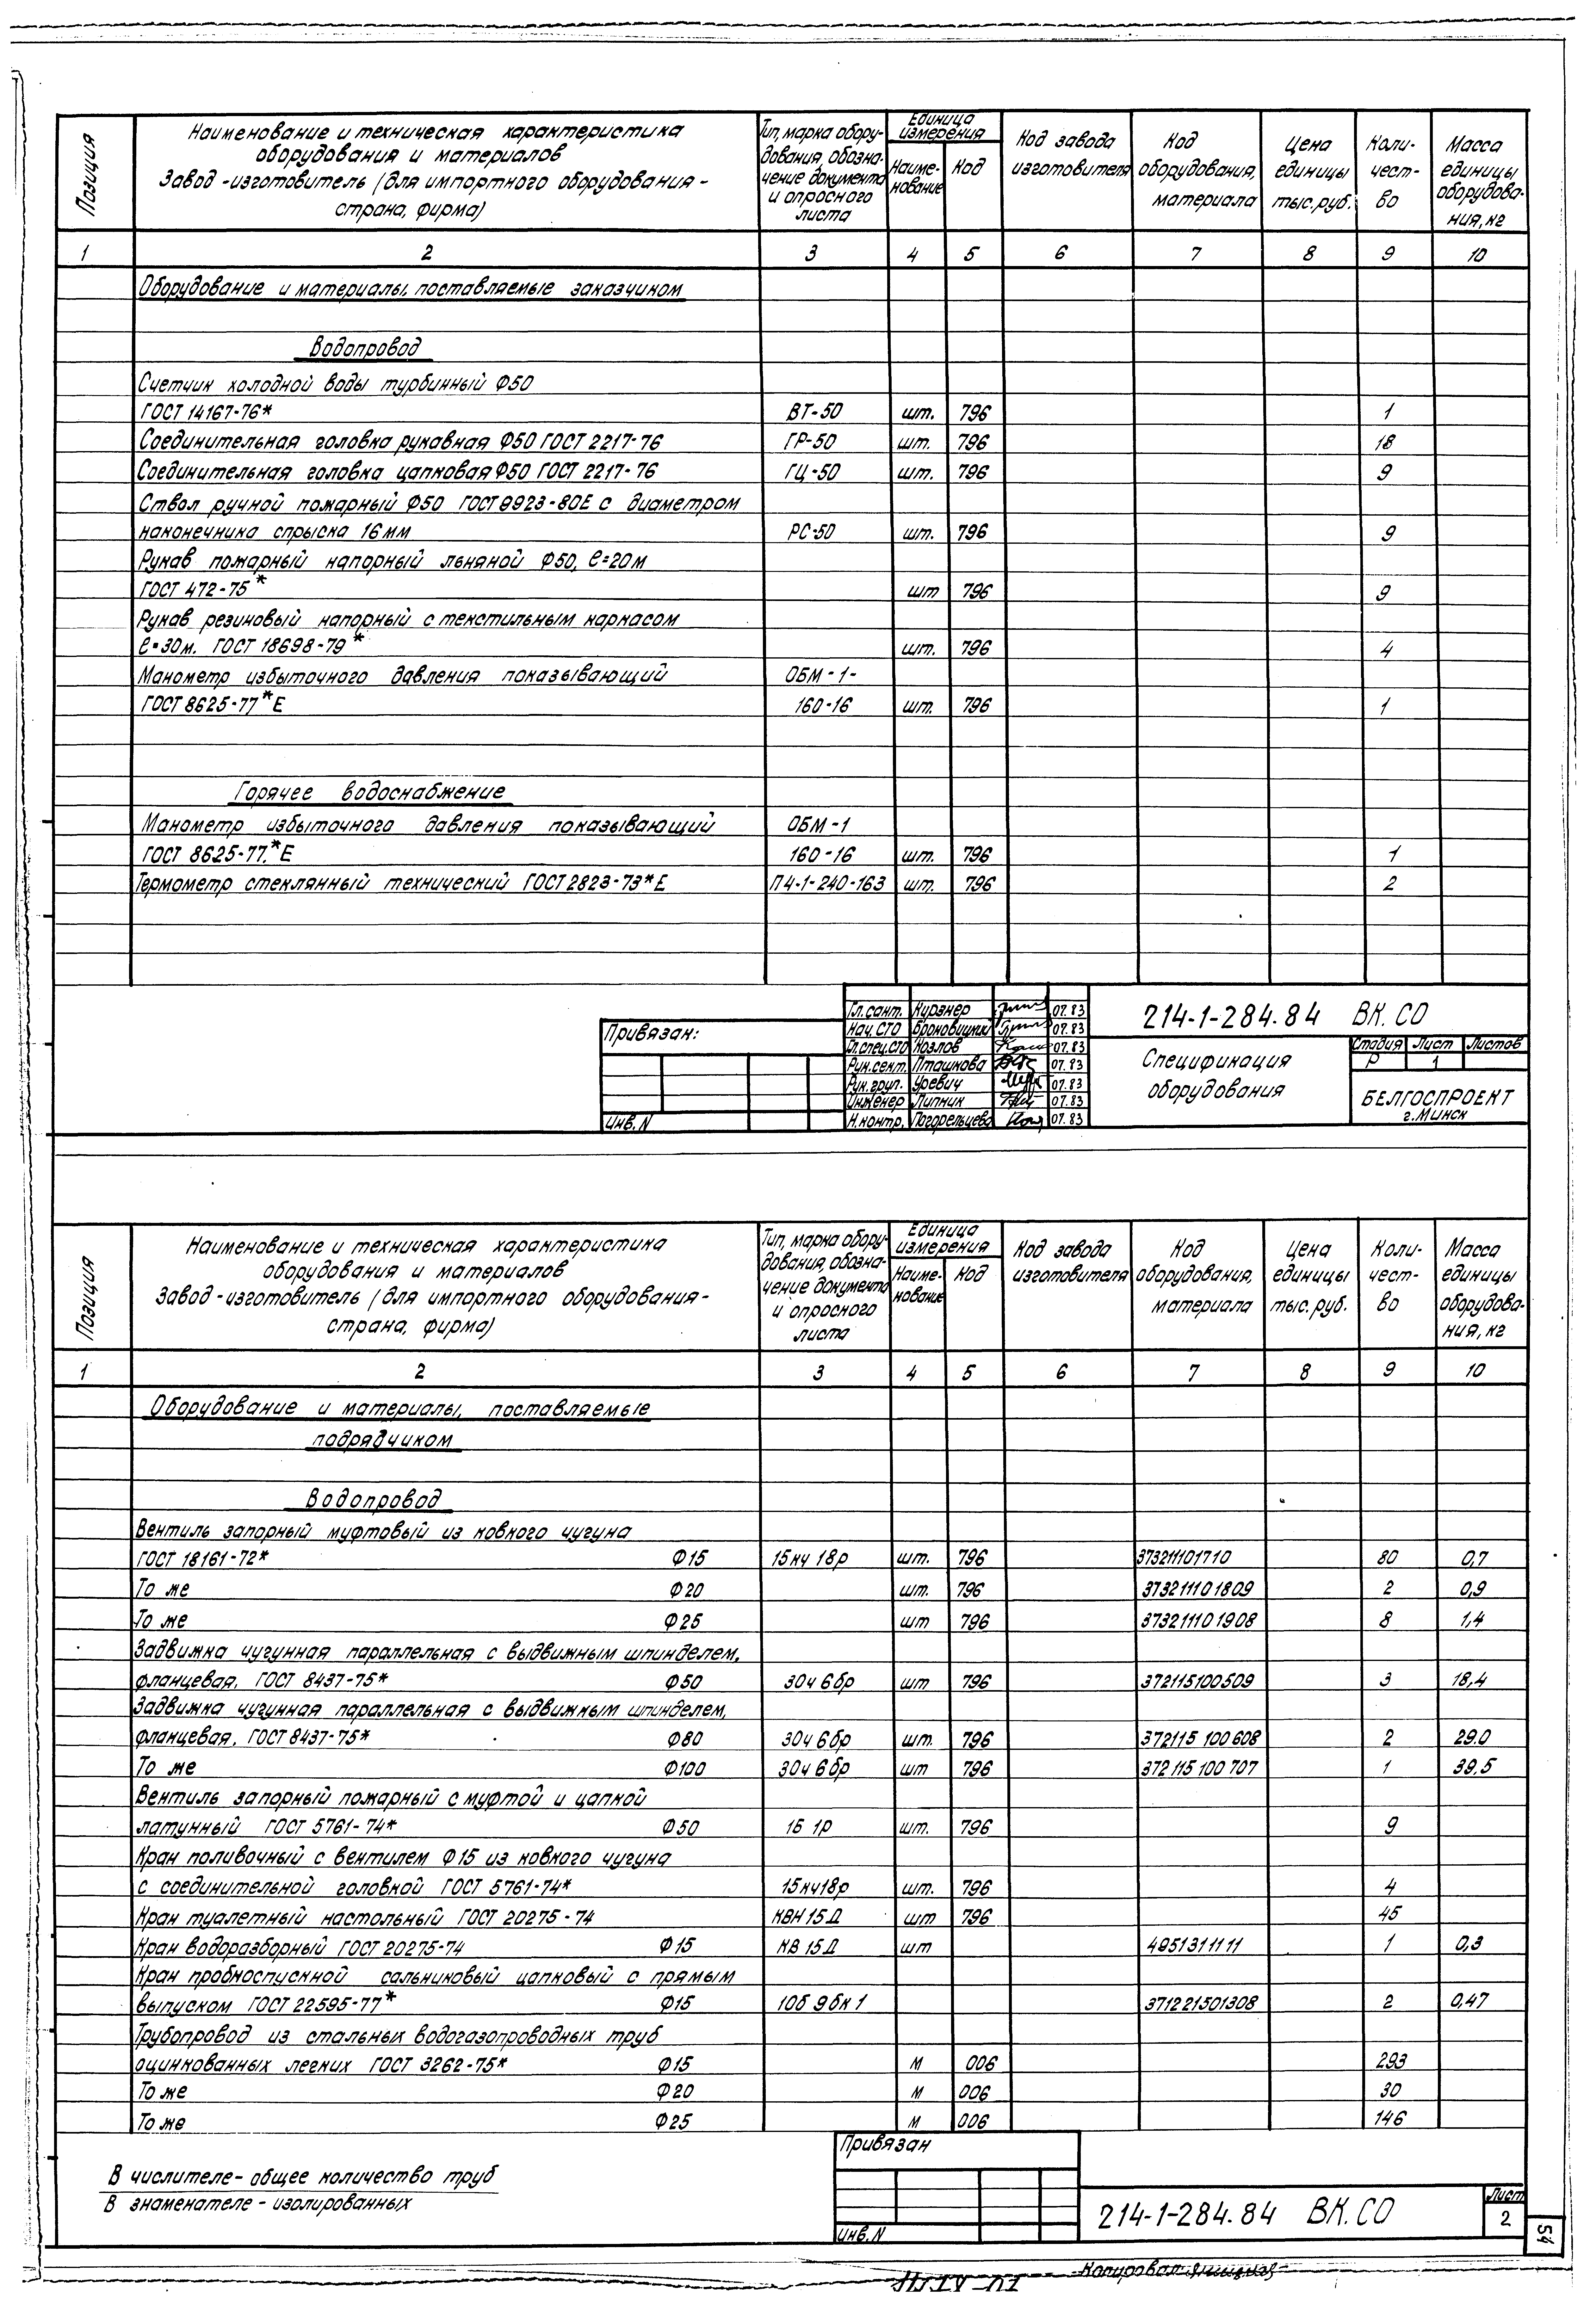 Позиция
Наименование и техническая характеристика
оборудования и материалов
Завод-изготовитель (для импортного оборудования -
страна, фирма)
Тип, марка обору-
дования, обозна-
чение документа
и опросного
листа
Единица
измерения
Наиме-
нование
Код
Код завода
изготовителя
Код
оборудования,
материала
Цена
единицы
тыс. руб.
Коли-
чест-
во
Масса
единицы
оборудова-
ния, кг
1 2 3 4 5 6 7 8 9 10
Оборудование и материалы, поставляемые заказчиком
Водопровод
Счетчик холодной воды турбинный Ф50
ГОСТ 14167-76* ВТ-50 шт. 796 1
Соединительная головка рукавная Ф50 ГОСТ 2217-76 ГР-50 шт. 796 18
Соединительная головка цапковая Ф50 ГОСТ 2217-76 ГЦ-50 шт. 796 9
Ствол ручной пожарный Ф50 ГОСТ 9923-80Е с диаметром
наконечника спрыска 16 мм РС-50 шт. 796 9
Рукав пожарный напорный льняной Ф50, ℓ=20м
ГОСТ 472-75* шт 796 9
Рукав резиновый напорный с текстильным каркасом
ℓ=30м. ГОСТ 18698-79* шт. 796 4
Манометр избыточного давления показывающий ОБМ-1-
ГОСТ 8625-77*Е 160-16 шт. 796 1
Горячее водоснабжение
Манометр избыточного давления показывающий ОБМ-1
ГОСТ 8625-77.*Е 160-16 шт. 796 1
Термометр стеклянный технический ГОСТ 2823-73*Е П4-1-240-163 шт. 796 2
Привязан:
Инв. N
Гл. сант. Курзнер 07.83
Нач. СТО Броновицкий 07.83
Гл. спец. СТО Козлов 07.83
Рук. сект. Пташкова 07.83
Рук. груп. Уревич 07.83
Инженер Липник 07.83
Н. контр. Погорельцева 07.83
214-1-284.84 ВК. СО
Спецификация
оборудования
Стадия Лист Листов
Р 1
БЕЛГОСПРОЕКТ
г. Минск
Позиция
Наименование и техническая характеристика
оборудования и материалов
Завод-изготовитель (для импортного оборудования -
страна, фирма)
Тип, марка обору-
дования, обозна-
чение документа
и опросного
листа
Единица
измерения
Наиме-
нование
Код
Код завода
изготовителя
Код
оборудования,
материала
Цена
единицы
тыс. руб.
Коли-
чест-
во
Масса
единицы
оборудова-
ния, кг
1 2 3 4 5 6 7 8 9 10
Оборудование и материалы, поставляемые
подрядчиком
Водопровод
Вентиль запорный муфтовый из ковкого чугуна
ГОСТ 18161-72* Ф15 15кч 18р шт. 796 373211101710 80 0,7
То же Ф20 шт. 796 373211101809 2 0,9
То же Ф25 шт 796 373211101908 8 1,4
Задвижка чугунная параллельная с выдвижным шпинделем,
фланцевая, ГОСТ 8437-75* Ф50 30ч 6бр шт 796 372115100509 3 18,4
Задвижка чугунная параллельная с выдвижным шпинделем,
фланцевая, ГОСТ 8437-75* Ф80 30ч 6бр шт. 796 372115 100 608 2 29.0
То же Ф100 30ч 6бр шт 796 372 115 100 707 1 39,5
Вентиль запорный пожарный с муфтой и цапкой
латунный ГОСТ 5761-74* Ф50 1Б 1р шт. 796 9
Кран поливочный с вентилем Ф15 из ковкого чугуна
с соединительной головкой ГОСТ 5761-74* 15кч18р шт. 796 4
Кран туалетный настольный ГОСТ 20275-74 КВН 15 Д шт 796 45
Кран водоразборный ГОСТ 20275-74 Ф15 КВ 15 Д шт 4951311111 1 0,3
Кран пробкоспускной сальниковый цапковый с прямым
выпуском ГОСТ 22595-77* Ф15 10б 9бк 1 371221501308 2 0,47
Трубопровод из стальных водогазопроводных труб
оцинкованных легких ГОСТ 3262-75* Ф15 м 006 293
То же Ф20 м 006 30
То же Ф25 м 006 146
В числителе - общее количество труб
В знаменателе - изолированных
Привязан
Инв. N
214-1-284.84 ВК. СО
Лист
2
54
Копировал